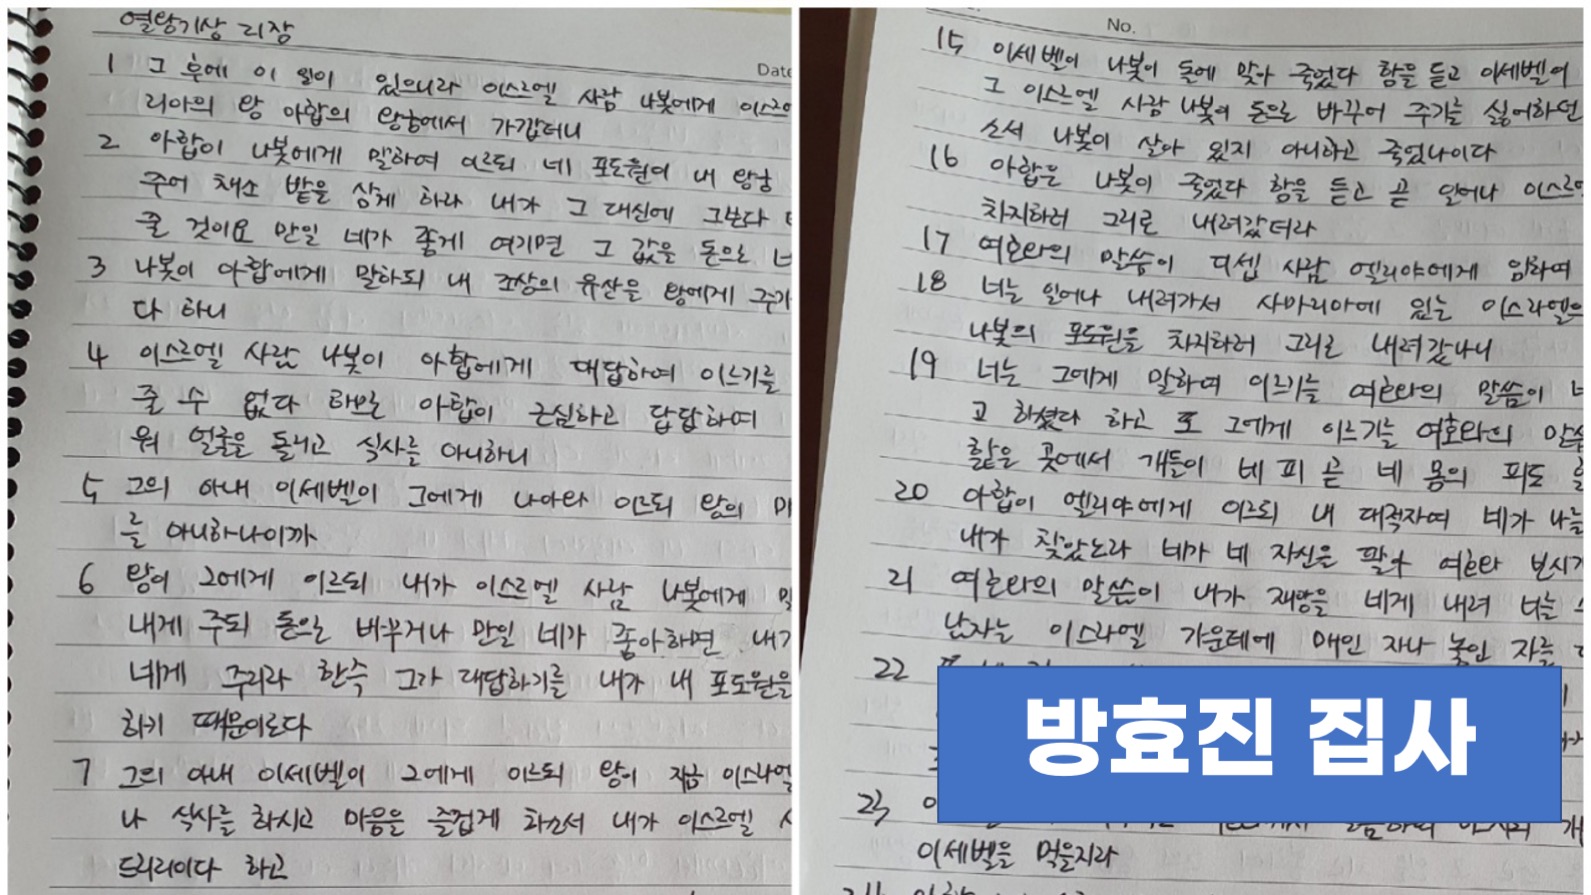 열왕기상 21장
Date
1 그 후에 이 일이 있으니라 이스르엘 사람 나봇에게 이스르
리아의 왕 아합의 왕궁에서 가깝더니
2 아합이 나봇에게 말하여 이르되 네 포도원이 내 왕궁
주어 채소 밭을 삼게 하라 내가 그 대신에 그보다
줄 것이요 만일 네가 좋게 여기면 그 값을 돈으로 너
3 나봇이 아합에게 말하되 내 조상의 유산을 왕에게 주기
다 하니
4 이스르엘 사람 나봇이 아합에게 대답하여 이르기를
줄 수 없다 하므로 아합이 근심하고 답답하여
워 얼굴을 돌리고 식사를 아니하니
5 그의 아내 이세벨이 그에게 나아와 이르되 왕의 마
를 아니하나이까
6 왕이 그에게 이르되 내가 이스르엘 사람 나봇에게 말
내게 주되 돈으로 바꾸거나 만일 네가 좋아하면 내가
네게 주리라 한즉 그가 대답하기를 내가 내 포도원을
하기 때문이로다
7 그의 아내 이세벨이 그에게 이르되 왕이 지금 이스라엘
나 식사를 하시고 마음을 즐겁게 하소서 내가 이스르엘 사
드리리이다 하고
No.
15 이세벨이 나봇이 돌에 맞아 죽었다 함을 듣고 이세벨이
그 이스르엘 사람 나봇이 돈으로 바꾸어 주기를 싫어하던
소서 나봇이 살아 있지 아니하고 죽었나이다
16 아합은 나봇이 죽었다 함을 듣고 곧 일어나 이스르
차지하러 그리로 내려갔더라
17 여호와의 말씀이 디셉 사람 엘리야에게 임하여
18 너는 일어나 내려가서 사마리아에 있는 이스라엘의
나봇의 포도원을 차지하러 그리로 내려갔나니
19 너는 그에게 말하여 이르기를 여호와의 말씀이 네
고 하셨다 하고 또 그에게 이르기를 여호와의 말씀
핥은 곳에서 개들이 네 피 곧 네 몸의 피도 핥
20 아합이 엘리야에게 이르되 내 대적자여 네가 나를
내가 찾았노라 네가 네 자신을 팔아 여호와 보시기
21 여호와의 말씀이 내가 재앙을 네게 내려 너를
남자는 이스라엘 가운데에 매인 자나 놓인 자를
22
방효진 집사
23
이세벨을 먹을지라